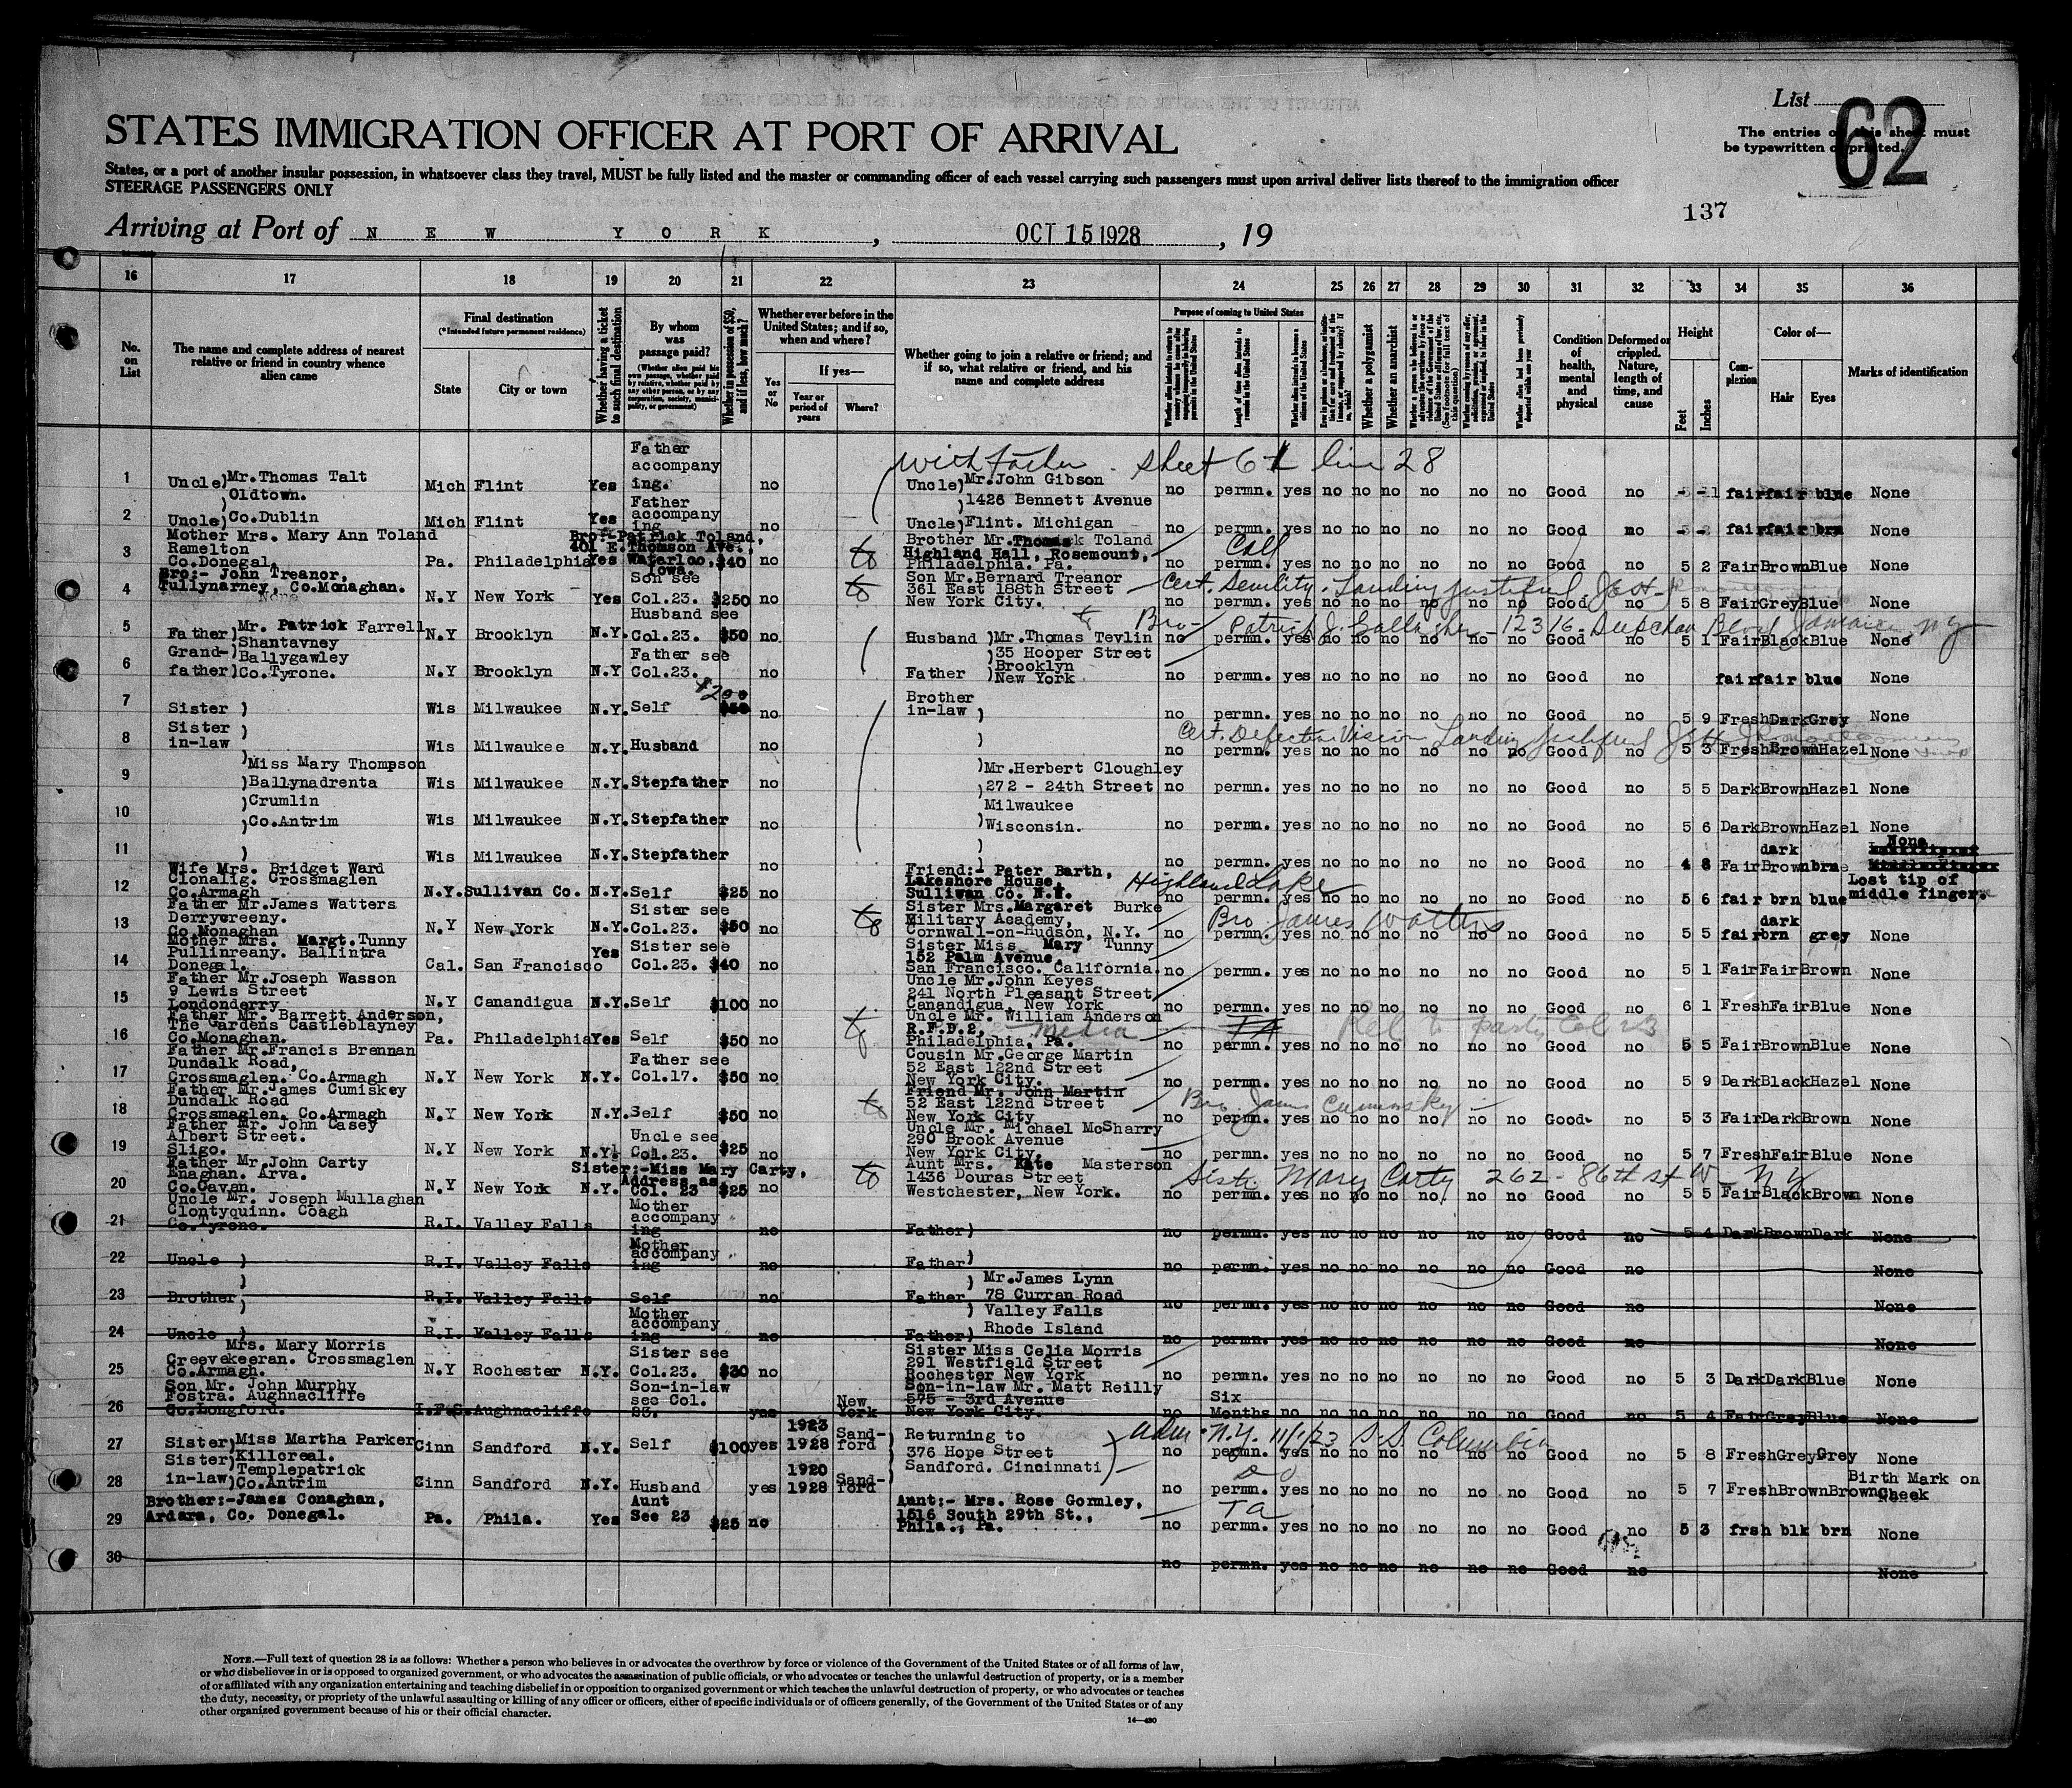 List
62
STATES IMMIGRATION OFFICER AT PORT OF ARRIVAL
The entries on this sheet must
be typewritten or printed.
States, or a port of another insular possession, in whatsoever class they travel, MUST be fully listed and the master or commanding officer of each vessel carrying such passengers must upon arrival deliver lists thereof to the immigration officer
STEERAGE PASSENGERS ONLY
137
Arriving at Port of NEW YORK, OCT 15 1928, 19
16 17 18 19 20 21 22 23 24 25 26 27 28 29 30 31 32 33 34 35 36
No. on List
The name and complete address of nearest relative or friend in country whence alien came
Final destination
(*Intended future permanent residence)
State
City or town
Whether having a ticket to such final destination
By whom was passage paid?
(Whether alien paid his own passage, whether paid by relative, whether paid by any other person, or by any corporation, society, municipality, or government)
Whether in possession of $50, and if less, how much?
Whether ever before in the United States; and if so, when and where?
Yes or No
If yes—
Year or period of years
Where?
Whether going to join a relative or friend; and if so, what relative or friend, and his name and complete address
Purpose of coming to United States
Length of time alien intends to remain in the United States
Whether alien intends to become a citizen of the United States
Whether a polygamist
Whether an anarchist
Condition of health, mental and physical
Deformed or crippled. Nature, length of time, and cause
Height
Feet
Inches
Complexion
Color of—
Hair
Eyes
Marks of identification
with father. sheet 61 line 28
1 Uncle) Mr. Thomas Talt Oldtown. Mich Flint Yes Father accompanying. no Uncle) Mr. John Gibson 1426 Bennett Avenue no permn. yes no no no no no no Good no fair fair blue None
2 Uncle) Co. Dublin Mich Flint Yes Father accompanying no Uncle) Flint. Michigan no permn. yes no no no no no no Good no fair fair brn None
3 Mother Mrs. Mary Ann Toland Ramelton Co. Donegal. Pa. Philadelphia Yes Bro:- Patrick Toland, 401 E. Thomson Ave., Waterloo, Iowa. $40 no to Brother Mr. Thomas Toland Highland Hall, Rosemount, Philadelphia. Pa. Call no permn. yes no no no no no no Good no 5 2 Fair Brown Blue None
4 Bro:- John Treanor, Tullynarney, Co. Monaghan. N.Y New York Yes Son see Col. 23. $250 no to Son Mr. Bernard Treanor 361 East 188th Street New York City. Cert. Senility. Landing justified no permn. yes no no no no no no Good no 5 8 Fair Grey Blue None
Bro- Patrick J. Gallagher - 12316 Blvd Jamaica NY
5 Father) Mr. Patrick Farrell Shantavney N.Y Brooklyn N.Y. Husband see Col. 23. $50 no Husband) Mr. Thomas Tevlin 35 Hooper Street no permn. yes no no no no no no Good no 5 1 Fair Black Blue None
6 Grand-father) Ballygawley Co. Tyrone. N.Y Brooklyn N.Y Father see Col. 23. no Father) Brooklyn New York no permn. yes no no no no no no Good no fair fair blue None
7 Sister) Wis Milwaukee N.Y. Self $200 $50 no Brother in-law) no permn. yes no no no no no no Good no 5 9 Fresh Dark Grey None
Cert. Defective Vision Landing justified
8 Sister in-law) Wis Milwaukee N.Y. Husband no no permn. yes no no no no no no Good no 5 3 Fresh Brown Hazel None
9 Miss Mary Thompson Ballynadrenta Wis Milwaukee N.Y. Stepfather no Mr. Herbert Cloughley 272 - 24th Street no permn. yes no no no no no no Good no 5 5 Dark Brown Hazel None
10 Crumlin Co. Antrim Wis Milwaukee N.Y. Stepfather no Milwaukee Wisconsin. no permn. yes no no no no no no Good no 5 6 Dark Brown Hazel None
11 Wis Milwaukee N.Y. Stepfather no no permn. yes no no no no no no Good no 4 8 Fair dark Brown brn None
12 Wife Mrs. Bridget Ward Clonalig. Crossmaglen Co. Armagh N.Y. Sullivan Co. N.Y. Self $25 no Friend:- Peter Barth, Lakeshore House, Sullivan Co. N.Y. Highland Lake no permn. yes no no no no no no Good no 5 6 fair brn blue Lost tip of middle finger.
13 Father Mr. James Watters Derrycreeny. Co. Monaghan N.Y New York N.Y. Sister see Col. 23. $50 no to Sister Mrs. Margaret Burke Military Academy, Cornwall-on-Hudson, N.Y. Bro James Watters no permn. yes no no no no no no Good no 5 5 fair dark brn grey None
14 Mother Mrs. Margt. Tunny Pullinreany. Ballintra Donegal. Cal. San Francisco Yes Sister see Col. 23. $40 no Sister Miss Mary Tunny 152 Palm Avenue, San Francisco. California. no permn. yes no no no no no no Good no 5 1 Fair Fair Brown None
15 Father Mr. Joseph Wasson 9 Lewis Street Londonderry N.Y Canandigua N.Y. Self $100 no Uncle Mr. John Keyes 241 North Pleasant Street Canandigua, New York no permn. yes no no no no no no Good no 6 1 Fresh Fair Blue None
16 Father Mr. Barrett Anderson, The Gardens Castleblayney Co. Monaghan. Pa. Philadelphia Yes Self $50 no Uncle Mr. William Anderson R.F.D.2, Media Philadelphia, Pa. no permn. yes no no no no no no Good no 5 5 Fair Brown Blue None
17 Father Mr. Francis Brennan Dundalk Road, Crossmaglen. Co. Armagh N.Y New York N.Y. Father see Col. 17. $50 no Cousin Mr. George Martin 52 East 122nd Street New York City. no permn. yes no no no no no no Good no 5 9 Dark Black Hazel None
18 Father Mr. James Cumiskey Dundalk Road Crossmaglen. Co. Armagh N.Y New York N.Y. Self $50 no to Friend Mr. John Martin 52 East 122nd Street New York City Bro James Cuminskey no permn. yes no no no no no no Good no 5 3 Fair Dark Brown None
19 Father Mr. John Casey Albert Street. Sligo. N.Y New York N.Y. Uncle see Col. 23. $25 no Uncle Mr. Michael McSharry 290 Brook Avenue New York City. no permn. yes no no no no no no Good no 5 7 Fresh Fair Blue None
20 Father Mr. John Carty Enaghan. Arva. Co. Cavan. N.Y New York N.Y. Sister:- Miss Mary Carty, Address as Col. 23 $25 no to Aunt Mrs. Kate Masterson 1436 Douras Street Westchester, New York. Sister Mary Carty 262 - 86th st W - NY no permn. yes no no no no no no Good no 5 5 Fair Black Brown None
21 Uncle Mr. Joseph Mullaghan Clontyquinn. Coagh Co. Tyrone. R.I. Valley Falls Mother accompanying no Father) no permn. yes no no no no no no Good no 5 4 Dark Brown Dark None
22 Uncle) R.I. Valley Falls Mother accompanying no Father) no permn. yes no no no no no no Good no None
23 Brother) R.I. Valley Falls Self no Father) Mr. James Lynn 78 Curran Road no permn. yes no no no no no no Good no None
24 Uncle) R.I. Valley Falls Mother accompanying no Father) Valley Falls Rhode Island no permn. yes no no no no no no Good no None
25 Mrs. Mary Morris Creevekeeran. Crossmaglen Co. Armagh. N.Y Rochester N.Y. Sister see Col. 23. $30 no Sister Miss Celia Morris 291 Westfield Street Rochester New York no permn. yes no no no no no no Good no 5 3 Dark Dark Blue None
26 Son Mr. John Murphy Fostra. Aughnacliffe Co. Longford. I.F.S. Aughnacliffe Son-in-law see Col. 23. yes New York Son-in-law Mr. Matt Reilly 575 - 3rd Avenue New York City. no Six Months no no no no no no no Good no 5 4 Fair Grey Blue None
27 Sister) Miss Martha Parker Killcreal. Cinn Sandford N.Y. Self $100 yes 1923 1928 Sandford Returning to 376 Hope Street Adm. N.Y. 11/1/23 S.S. Columbia no permn. yes no no no no no no Good no 5 8 Fresh Grey Grey None
28 Sister in-law) Templepatrick Co. Antrim Cinn Sandford N.Y. Husband yes 1920 1928 Sandford Sandford. Cincinnati Do no permn. yes no no no no no no Good no 5 7 Fresh Brown Brown Birth Mark on Cheek
29 Brother:- James Conaghan, Ardara, Co. Donegal. Pa. Phila. Yes Aunt See 23 $25 no Aunt:- Mrs. Rose Gormley, 1516 South 29th St., Phila., Pa. no permn. yes no no no no no no Good no 5 3 frsh blk brn None
30 no permn. yes no no no no no no Good no None
NOTE.—Full text of question 28 is as follows: Whether a person who believes in or advocates the overthrow by force or violence of the Government of the United States or of all forms of law,
or who disbelieves in or is opposed to organized government, or who advocates the assassination of public officials, or who advocates or teaches the unlawful destruction of property, or is a member
of or affiliated with any organization entertaining and teaching disbelief in or opposition to organized government or which teaches the unlawful destruction of property, or who advocates or teaches
the duty, necessity, or propriety of the unlawful assaulting or killing of any officer or officers, either of specific individuals or of officers generally, of the Government of the United States or of any
other organized government because of his or their official character.
14—430